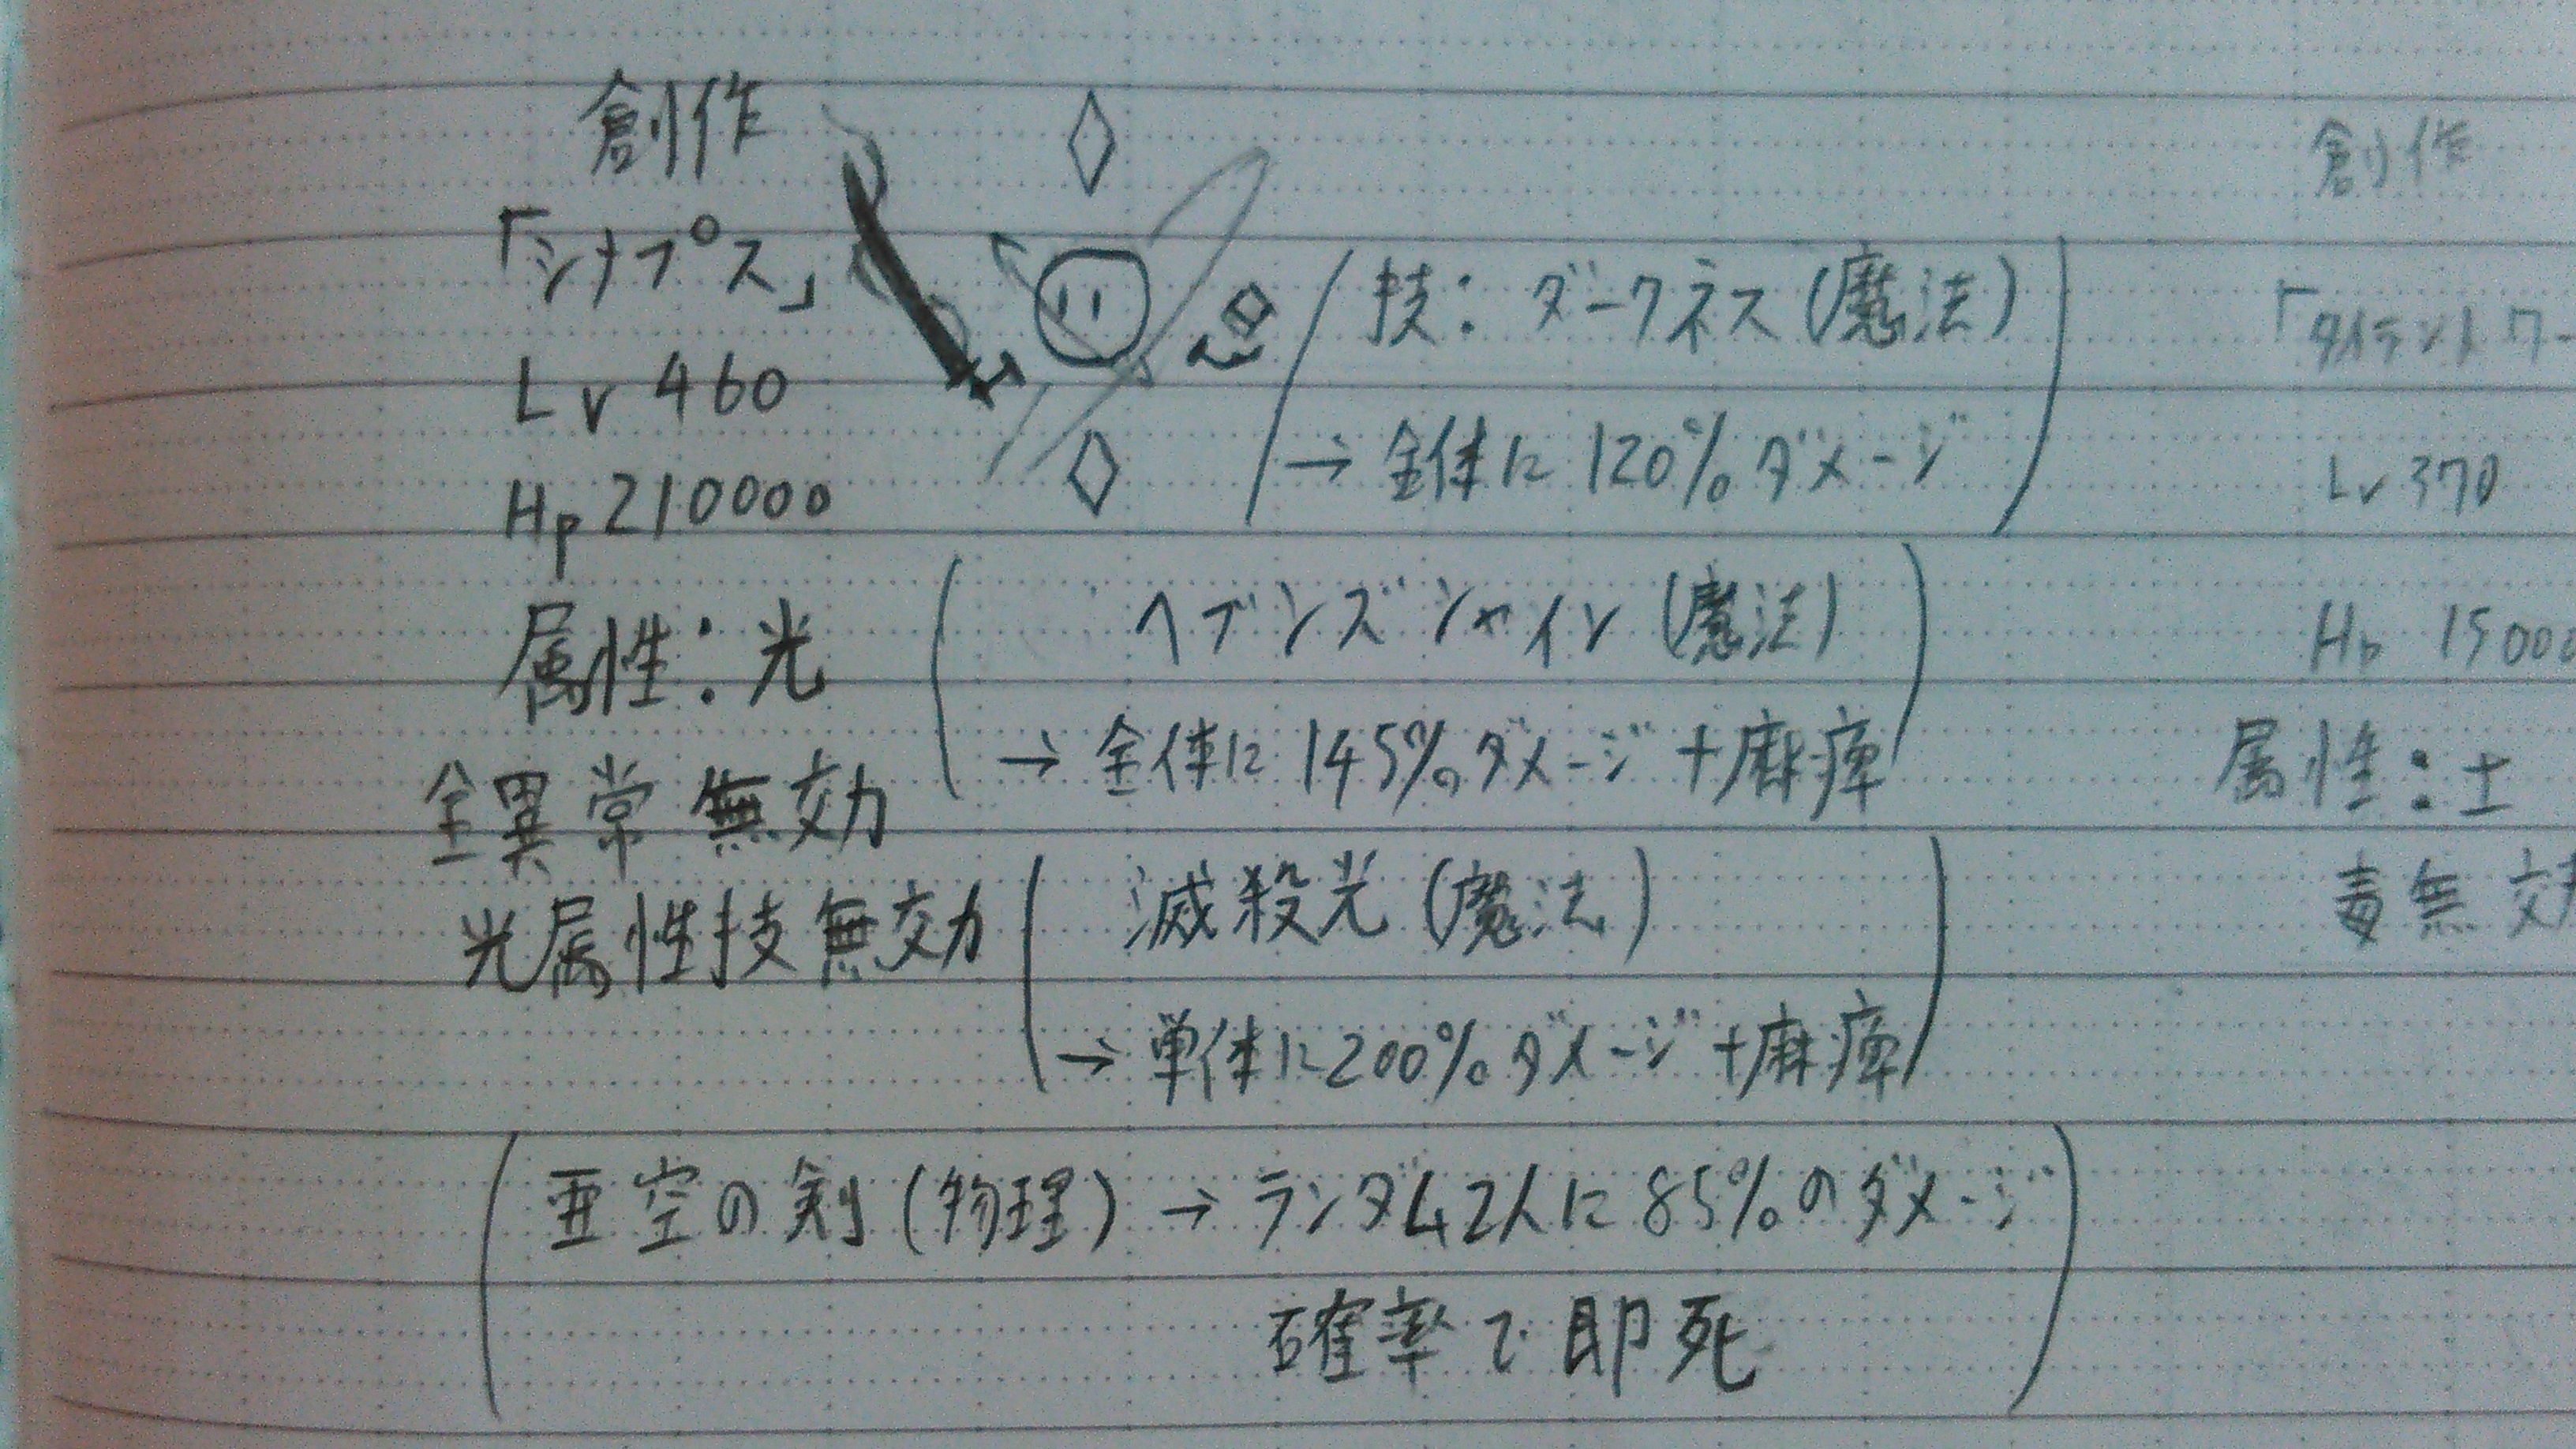 創作
「シナプス」
Lv 460
Hp 210000
属性：光
全異常無効
光属性技無効
技：ダークネス（魔法）
→ 全体に 120% ダメージ
ヘブンズシャイン（魔法）
→ 全体に 145% ダメージ + 麻痺
滅殺光（魔法）
→ 単体に 200% ダメージ + 麻痺
亜空の剣（物理）→ ランダム2人に 85% のダメージ
確率で即死
創作
Lv 370
属性：土
毒無効